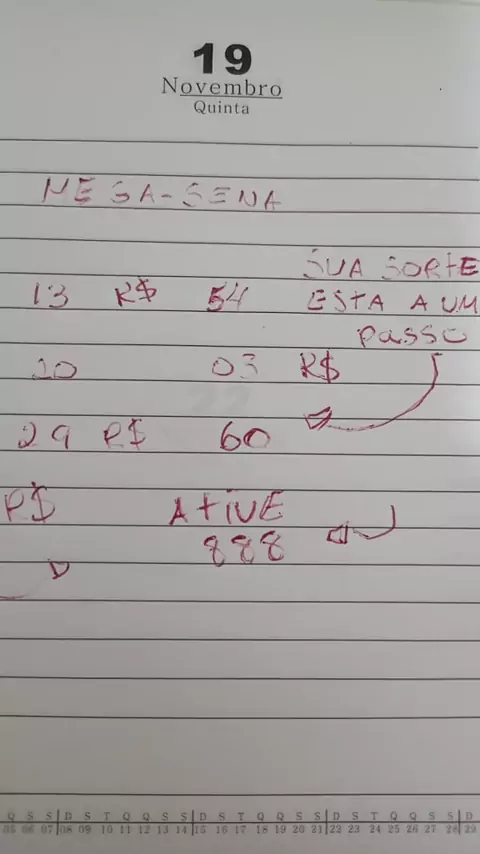 19
Novembro
Quinta
MEGA-SENA
SUA SORTE
13 R$ 54 ESTA A UM
passo
10 03 R$
29 R$ 60
R$ ATIVE
888
Q S S D S T Q Q S S D S T Q Q S S D S T Q Q S S D
05 06 07 08 09 10 11 12 13 14 15 16 17 18 19 20 21 22 23 24 25 26 27 28 29